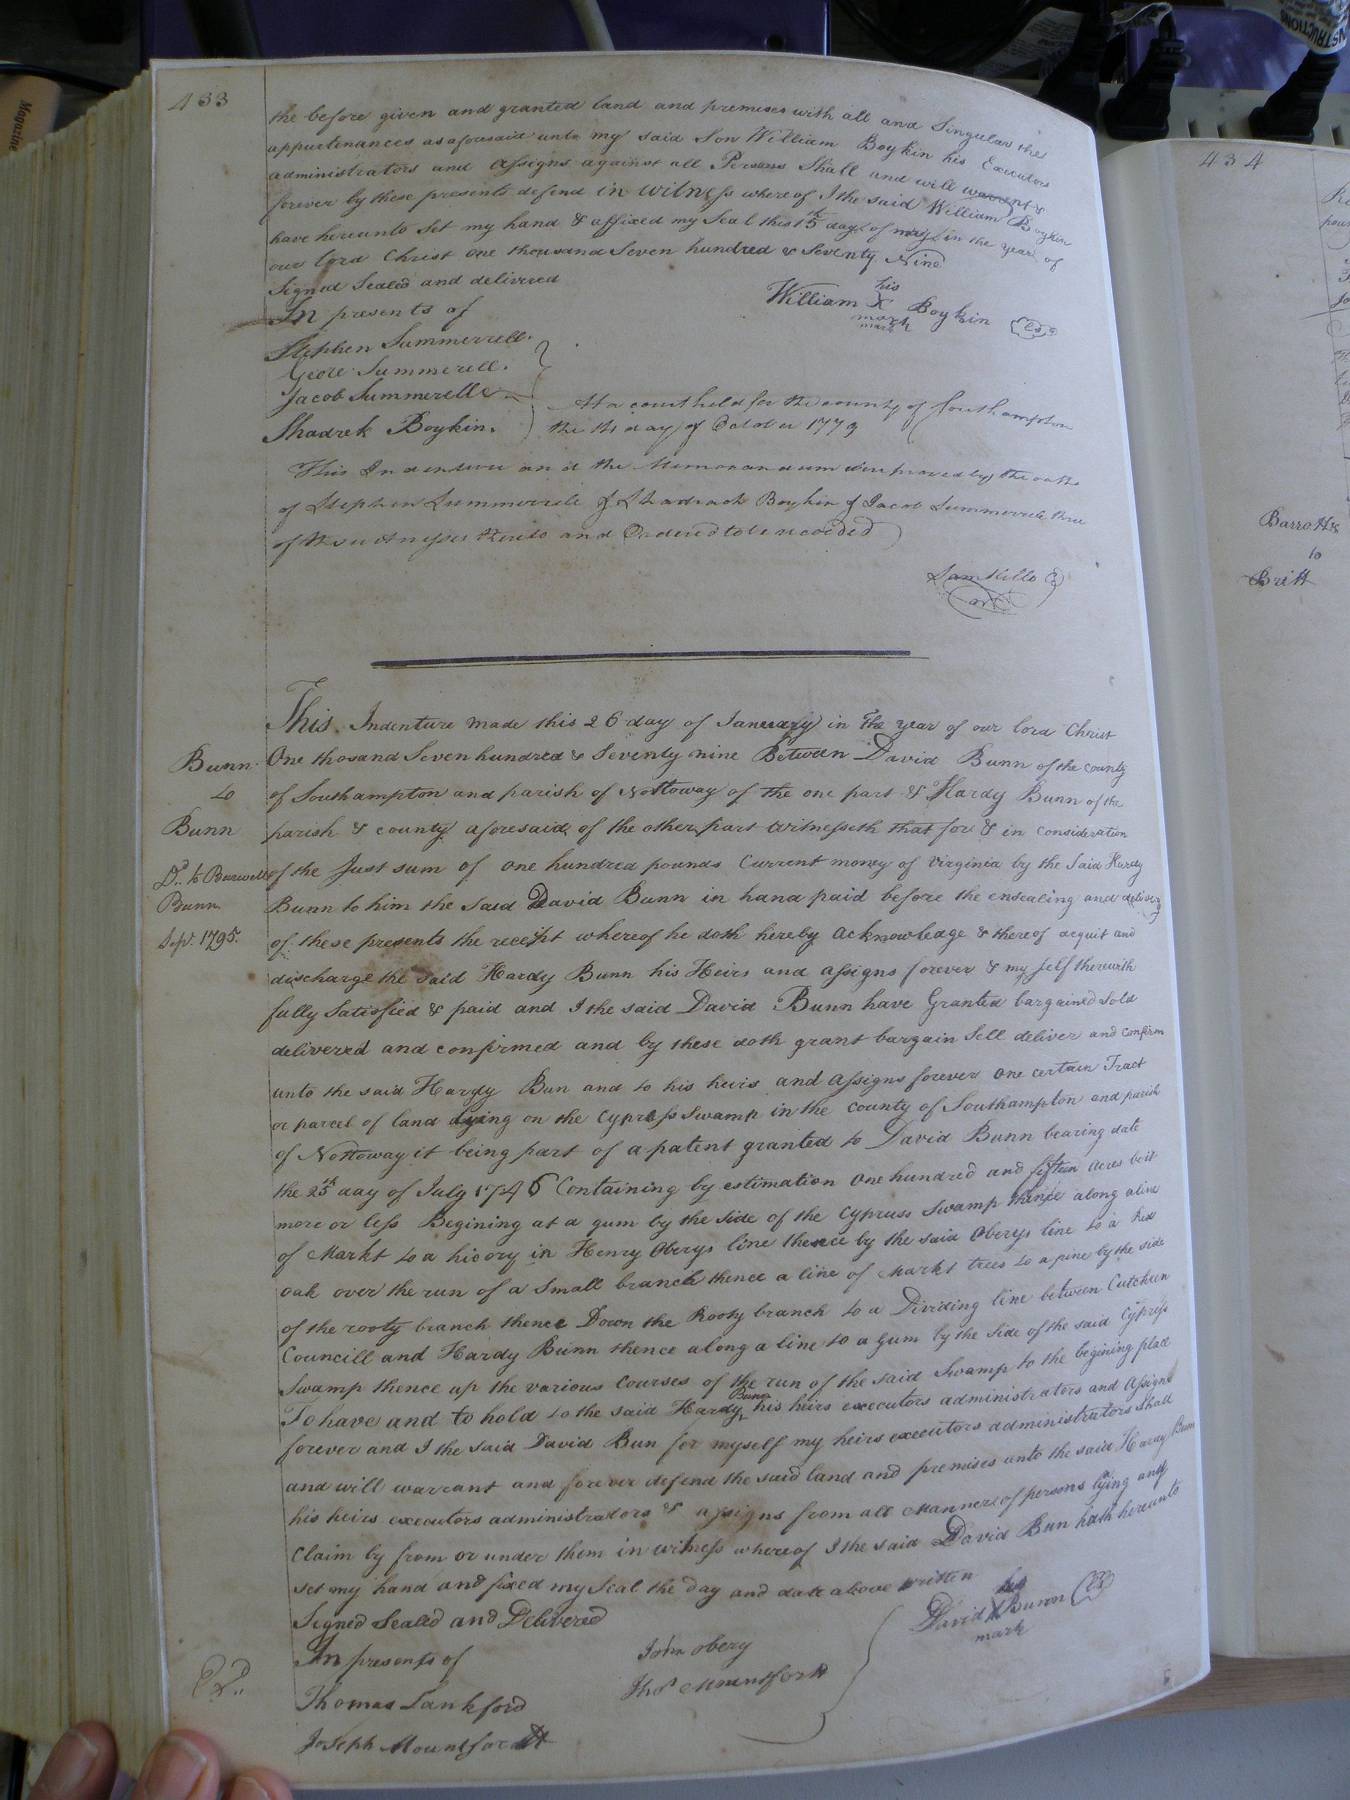 433
the before given and granted land and premises with all and Singular the
appurtenances as aforesaid unto my said Son William Boykin his Executors
administrators and Assigns against all Persons Shall and will warrent &
forever by these presents defend in witness whereof I the said William Boykin
have hereunto Set my hand & affixed my Seal this 15th day of may in the year of
our lord Christ one thousand Seven hundred & Seventy Nine
Signed Sealed and delivered
In presents of
his
William X Boykin
mark
mark
Stephen Summerrell.
Geore Summerell.
Jacob Summerelle
Shadrek Boykin.
At a court held for the county of Southampton
the 14 day of October 1779
This Indenture and the Memorandum were proved by the oaths
of Stephen Summerrele & Shadrach Boykin & Jacob Summerrele three
of the witnesses thereto and Ordered to be recorded
Sam Kello
This Indenture made this 26 day of January in the year of our lord Christ
One thosand Seven hundred & Seventy nine Between David Bunn of the county
of Southampton and parish of Nottoway of the one part & Hardy Bunn of the
parish & county aforesaid of the other part witnesseth that for & in consideration
of the Just sum of one hundred pounds Current money of virginia by the Said Hardy
Bunn to him the said David Bunn in hand paid before the ensealing and delivery
of these presents the receipt whereof he doth hereby acknowledge & thereof acquit and
discharge the said Hardy Bunn his Heirs and assigns forever & my self therewith
fully Satisfied & paid and I the said David Bunn have Granted bargained Sold
delivered and confirmed and by these doth grant bargain Sell deliver and confirm
unto the said Hardy Bun and to his heirs and assigns forever one certain Tract
or parcel of land lying on the Cypress Swamp in the county of Southampton and parish
of Nottoway it being part of a patent granted to David Bunn bearing date
the 25th day of July 1746 Containing by estimation one hundred and fifteen acres be it
more or less Begining at a gum by the side of the Cypruss Swamp thence along aline
of Markt to a hicory in Henry Oberys line thence by the said Oberys line to a Red
oak over the run of a small branch thence a line of Markt trees to a pine by the side
of the rooty branch thence Down the Rooty branch to a Dividing line between Cutchun
Councill and Hardy Bunn thence along a line to a gum by the side of the said Cypress
Swamp thence up the various Courses of the run of the said Swamp to the begining place
To have and to hold to the said Hardy Bunn his heirs executors administrators and assigns
forever and I the said David Bun for myself my heirs executors administrators shall
and will warrant and forever defend the said land and premises unto the said Hardy Bunn
his heirs executors administrators & assigns from all Manner of persons lying and
Claim by from or under them in witness whereof I the said David Bun hath hereunto
set my hand and fixed my Seal the day and date above written
Signed Sealed and Delivered
In presents of
Thomas Lankford
Joseph Mountfordtt
John obery
Thos Mountfortt
his
David X Bunn
mark
Bunn
to
Bunn
Dd. to Burwell
Bunn
Sepr. 1795.
434
Barrott &
to
Britt
INSTRUCTIONS
Magazine